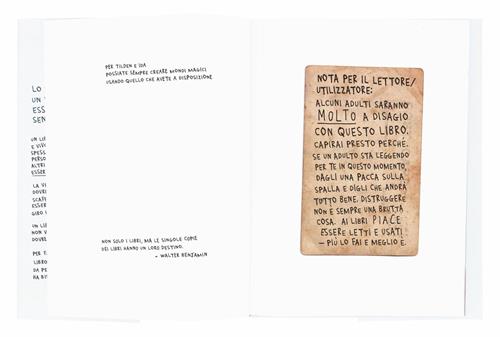 LO
UN
ESS
SEN
UN LI
E VIV
SPESS
PERSO
ALTRI
ESSER
LA V
DOVRE
SCAF
ESSER
GIRO
UN LI
NON V
DOVRE
PER T
LIBRO
DA PE
HA BI
PER TILDEN E IDA
POSSIATE SEMPRE CREARE MONDI MAGICI
USANDO QUELLO CHE AVETE A DISPOSIZIONE
NON SOLO I LIBRI, MA LE SINGOLE COPIE
DEI LIBRI HANNO UN LORO DESTINO.
- WALTER BENJAMIN
NOTA PER IL LETTORE/
UTILIZZATORE:
ALCUNI ADULTI SARANNO
MOLTO A DISAGIO
CON QUESTO LIBRO.
CAPIRAI PRESTO PERCHÉ.
SE UN ADULTO STA LEGGENDO
PER TE IN QUESTO MOMENTO,
DAGLI UNA PACCA SULLA
SPALLA E DIGLI CHE ANDRÀ
TUTTO BENE. DISTRUGGERE
NON È SEMPRE UNA BRUTTA
COSA. AI LIBRI PIACE
ESSERE LETTI E USATI
– PIÙ LO FAI E MEGLIO È.